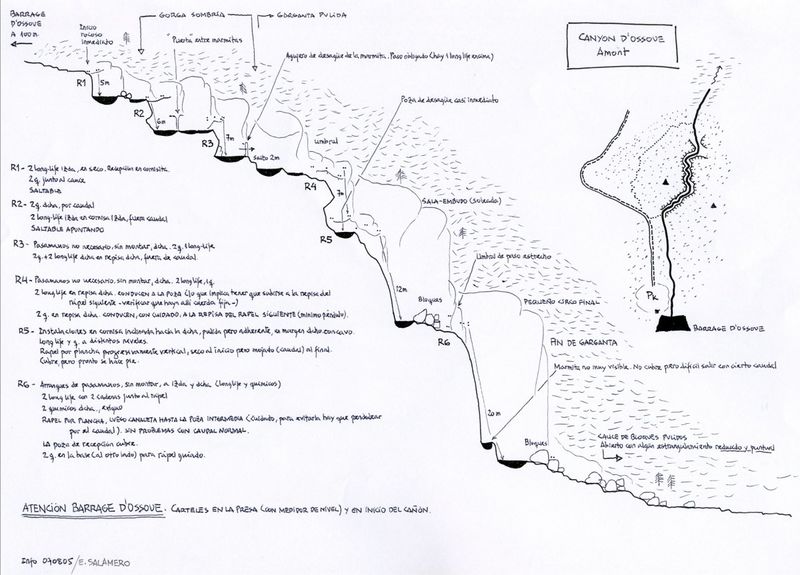 BARRAGE
D'OSSOUE
A 100 m.
Inicio
rocoso
inmediato
GORGA SOMBRÍA
GARGANTA PULIDA
"Puerta" entre marmitas
Agujero de desagüe de la marmita. Paso obligado (hay 1 long life encima)
Poza de desagüe casi inmediato
CANYON D'OSSOUE
Amont
R1
5m
R2
6m
R3
7m
SALTO 2m
Umbral
R4
7m
SALA-EMBUDO (soleada)
R5
12m
Bloques
Umbral de paso estrecho
R6
PEQUEÑO CIRCO FINAL
FIN DE GARGANTA
Marmita no muy visible. No cubre pero difícil salir con cierto caudal
20m
Bloques
CAUCE DE BLOQUES PULIDOS
Abierto con algún estrangulamiento reducido y puntual
PK
BARRAGE D'OSSOUE
R1 - 2 long-life izda, en seco. Recepción en cornisita.
2 q. junto al cauce
SALTABLE
R2 - 2 q. dcha, por caudal
2 long life izda en cornisa izda, fuera caudal
SALTABLE APUNTANDO
R3 - Pasamanos no necesario, sin montar, dcha. 2 q. 1 long-life
2 q. + 2 long life dcha en repisa dcha, fuera de caudal.
R4 - Pasamanos no necesario, sin montar, dcha. 2 long life, 1 q.
2 long life en repisa dcha. CONDUCEN A LA POZA (lo que implica tener que subirse a la repisa del
rápel siguiente - verificar que haya allí cuerda fija -)
2 q. en repisa dcha. CONDUCEN, CON CUIDADO, A LA REPISA DEL RAPEL SIGUIENTE (mínimo péndulo).
R5 - Instalaciones en cornisa inclinada hacia la dcha, pulida pero adherente, en margen dcho cóncavo.
long life y q. a distintos niveles.
Rapel por plancha progresivamente vertical, seco al inicio pero mojado (caudal) al final.
Cubre, pero pronto se hace pie.
R6 - Arranques de pasamanos, sin montar, a izda y dcha (long life y químicos)
2 long life con 2 cadenas justo al rápel
2 químicos dcha., exiguo
RAPEL POR PLANCHA, LUEGO CANALETA HASTA LA POZA INTERMEDIA (Cuidado, para evitarla hay que pendulear
por el caudal). SIN PROBLEMAS CON CAUDAL NORMAL.
LA POZA DE RECEPCIÓN CUBRE.
2 q. en la base (al otro lado) para rápel guiado.
ATENCIÓN BARRAGE D'OSSOUE. CARTELES EN LA PRESA (CON MEDIDOR DE NIVEL) Y EN INICIO DEL CAÑÓN.
Info 070805/E. SALAMERO